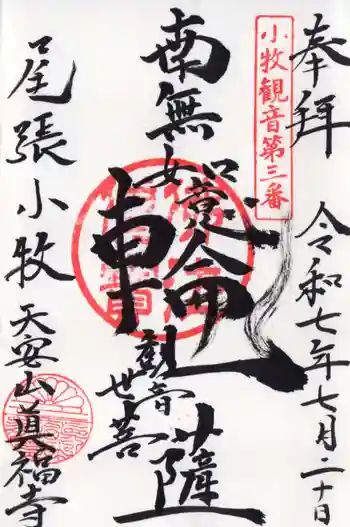 奉拝
令和七年七月二十日
小牧観音第三番
南無如意輪
観世音菩薩
尾張小牧
天室山真福寺